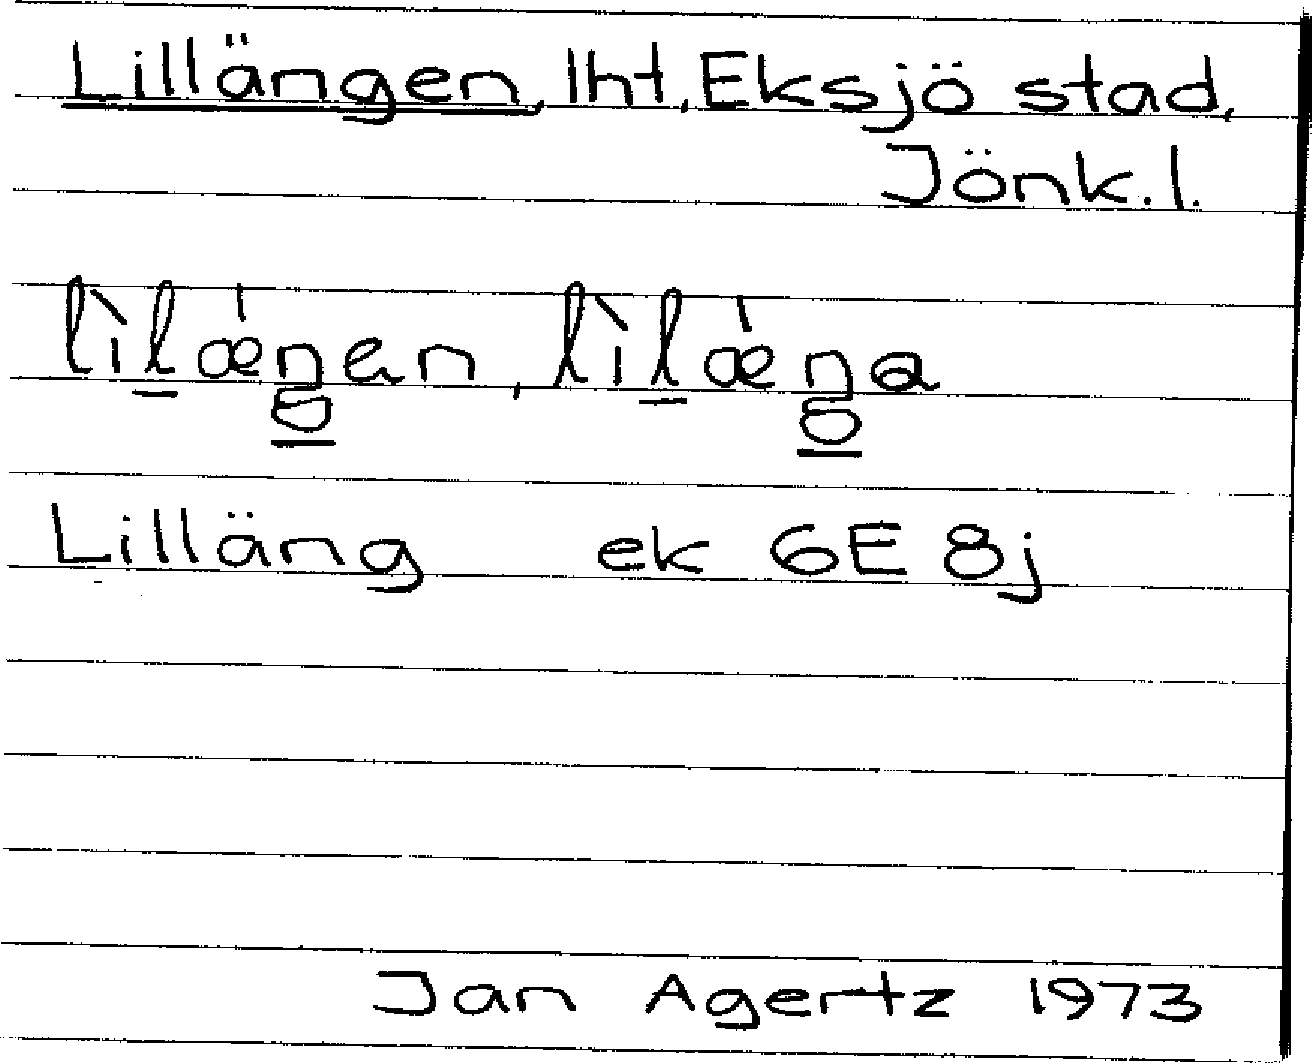 Lillängen, lht, Eksjö stad,
Jönk. l.
lìlæ̍ŋen, lìlæ̍ŋa
Lilläng ek 6E 8j
Jan Agertz 1973